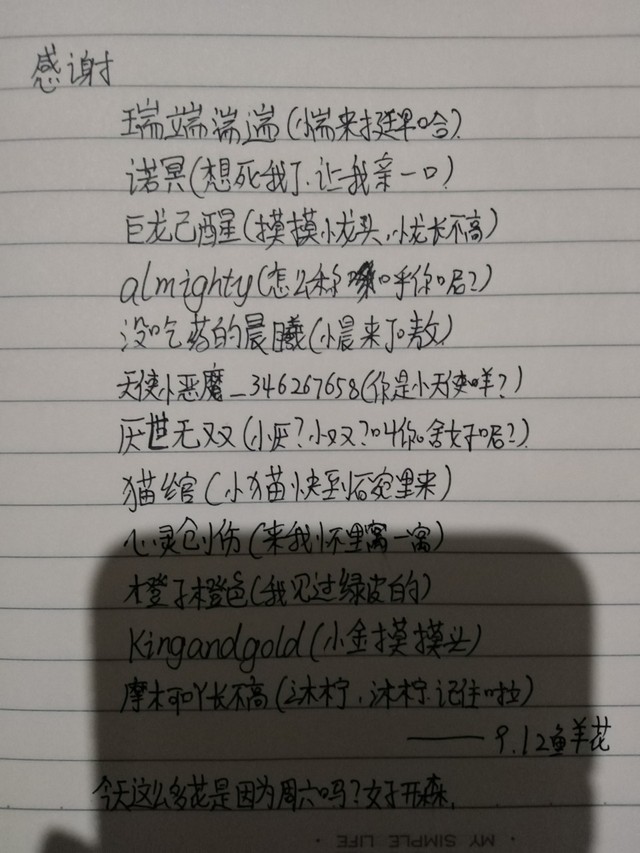 感谢
瑞端湍遄(小惴来挺早哈)
诺冥(想死我了.让我亲一口)
巨龙已醒(摸摸小龙头,小龙长不高)
almighty(怎么称呼你呢?)
没吃药的晨曦(小晨来了嗷)
天使小恶魔_346267658(你是小天使咩?)
厌世无双(小厌?小双?叫你啥好呢?)
猫绾(小猫快到碗里来)
心灵创伤(来我怀里窝一窝)
橙子橙色(我见过绿皮的)
Kingandgold(小金摸摸头)
摩柯吖长不高(沐柠,沐柠.记住啦)
——9.12鱼羊花
今天这么多花是因为周六吗?好开森.
MY SIMPLE LIFE